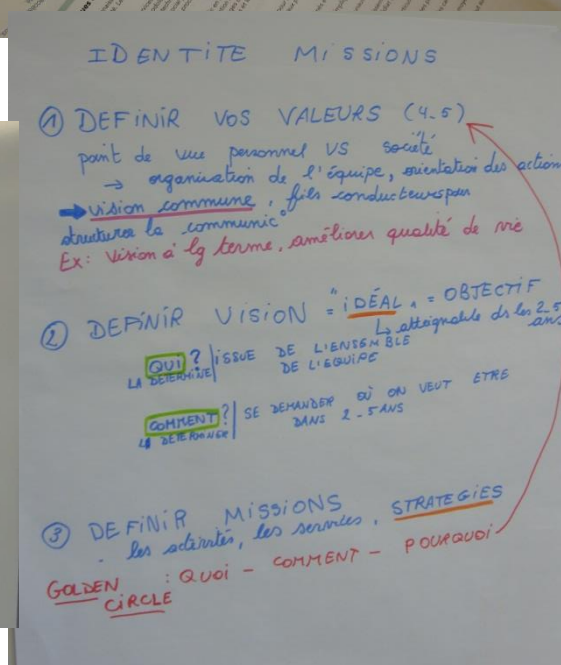 IDENTITE MISSIONS
① DEFINIR VOS VALEURS (4-5)
point de vue personnel VS société
→ organisation de l'équipe, orientation des action
→ vision commune, fils conducteurs pour
structurer la communic°
Ex: Vision à lg terme, améliorer qualité de vie
② DEFINIR VISION = "IDÉAL" = OBJECTIF
↳ atteignable ds les 2-5
ans
QUI ? ISSUE DE L'ENSEMBLE
LA DÉTERMINE DE L'EQUIPE
COMMENT ? SE DEMANDER OÙ ON VEUT ETRE
LA DÉTERMINER DANS 2-5 ANS
③ DEFINIR MISSIONS
les activités, les services, STRATEGIES
GOLDEN : QUOI - COMMENT - POURQUOI
CIRCLE